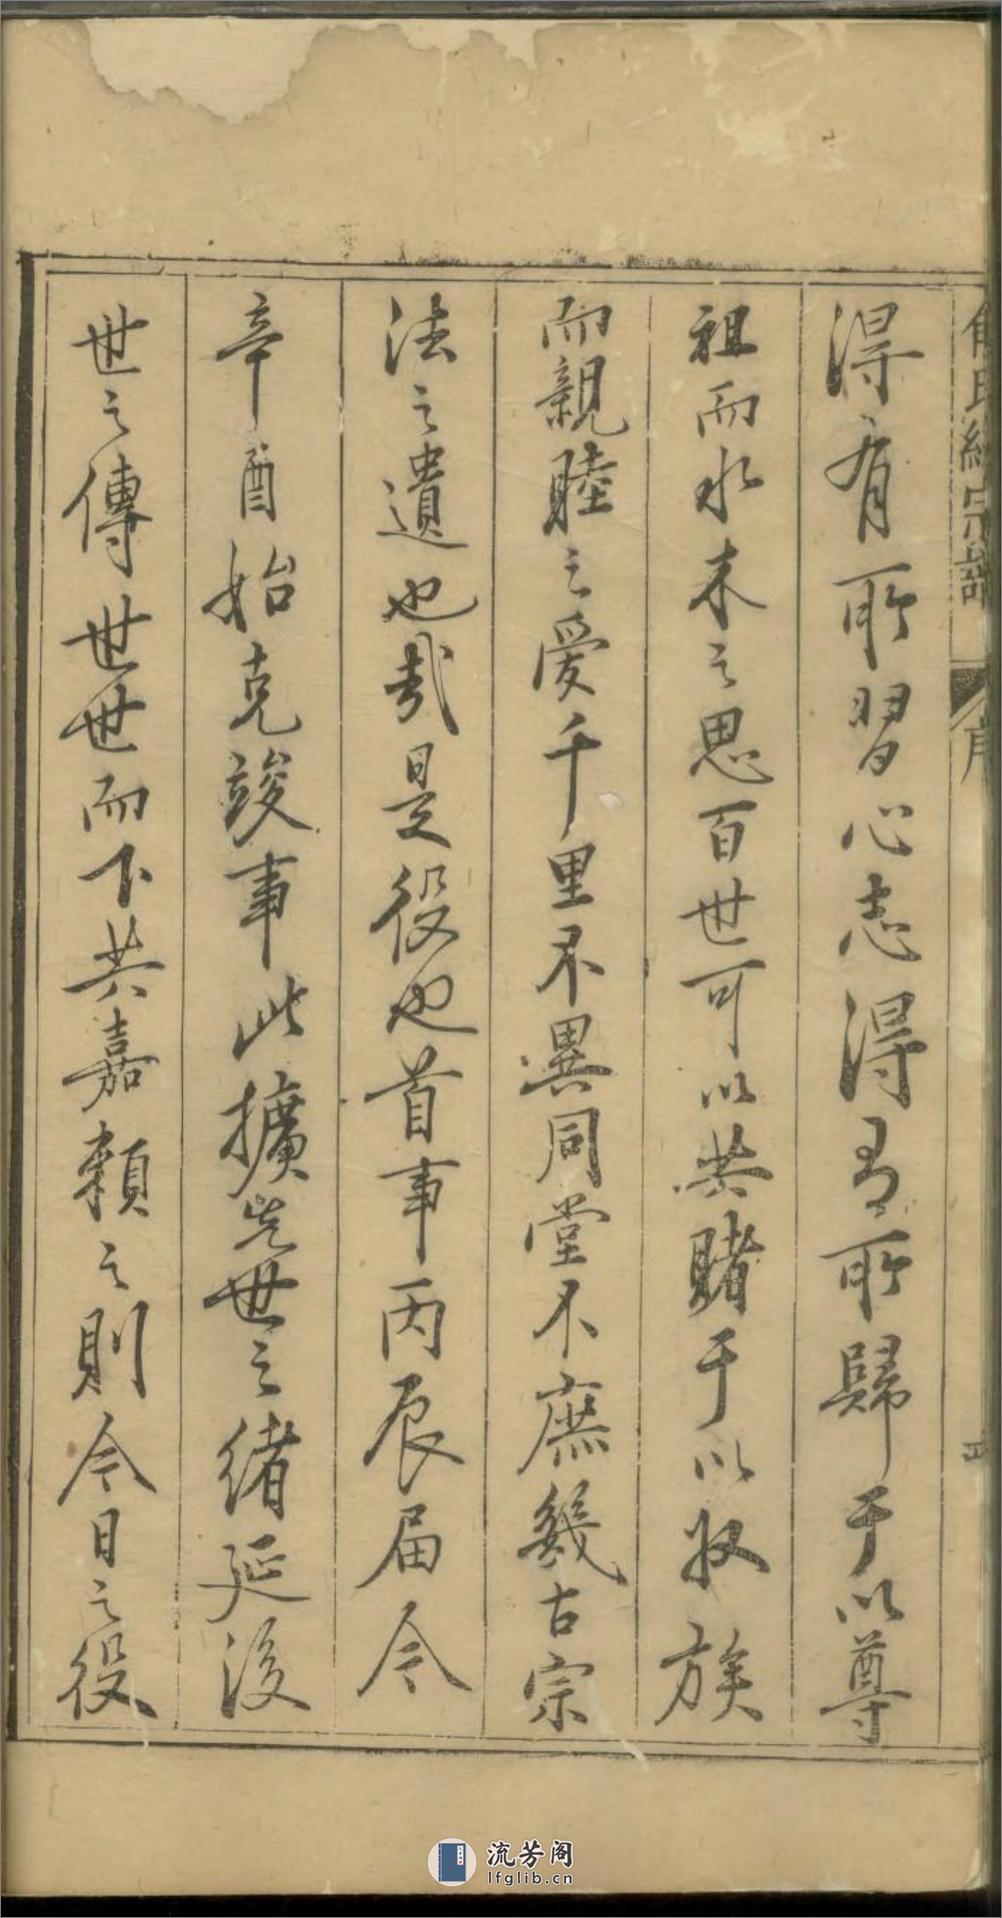 得有所習心志得有所歸于以尊
祖而水木之思百世可以共睹于以收族
而親睦之愛千里不異同堂不庶幾古宗
法之遺也哉是役也首事丙辰屆今
辛酉始克竣事此擴先世之緒延後
世之傳世世而下共嘉賴之則今日之役
流芳阁
lfglib.cn